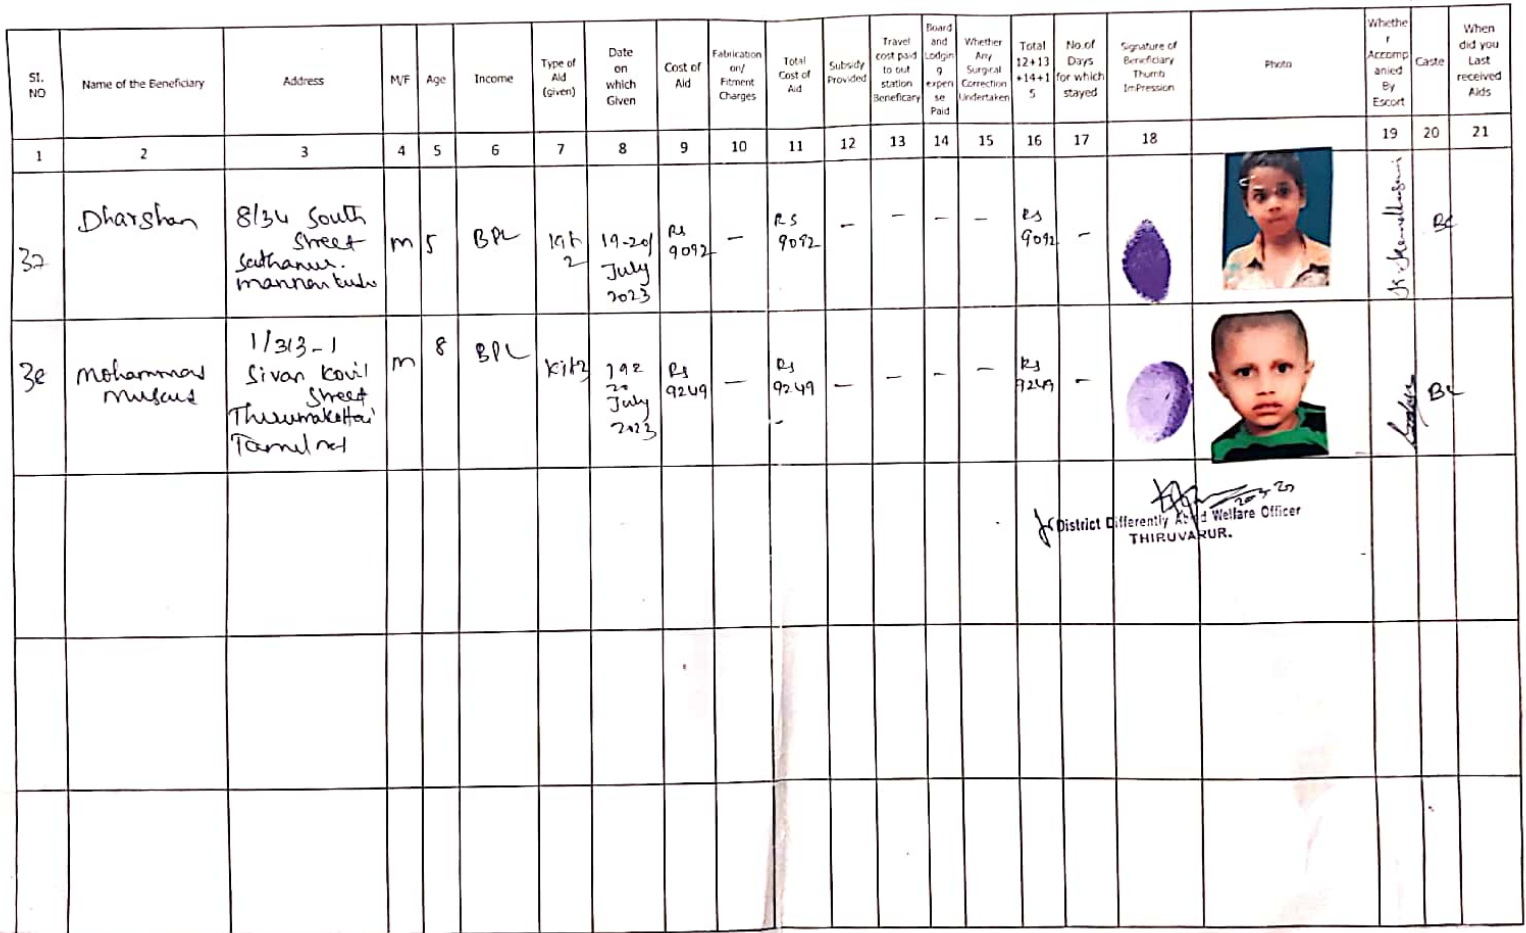 Sl.
NO
Name of the Beneficiary
Address
M/F
Age
Income
Type of
Aid
(given)
Date
on
which
Given
Cost of
Aid
Fabrication
on/
Fitment
Charges
Total
Cost of
Aid
Subsidy
Provided
Travel
cost paid
to out
station
Beneficary
Board
and
Lodgin
g
expen
se
Paid
Whether
Any
Surgical
Correction
Undertaken
Total
12+13
+14+1
5
No.of
Days
for which
stayed
Signature of
Beneficiary
Thumb
ImPression
Photo
Whethe
r
Accomp
anied
By
Escort
Caste
When
did you
Last
received
Aids
1 2 3 4 5 6 7 8 9 10 11 12 13 14 15 16 17 18 19 20 21
Dharshan
8/34 South
Street
Sathanur.
m 5 BPL
2
19-20/
July
2023
Rs
9092
-
Rs
9092
- - - -
Rs
9092
-
BC
Mohammad
1/313-1
Sivan Kovil
Street
m 8 BPL
20
July
2023
Rs
9249
-
Rs
9249
- - - -
Rs
9249
-
BC
District Differently Abled Welfare Officer
THIRUVARUR.